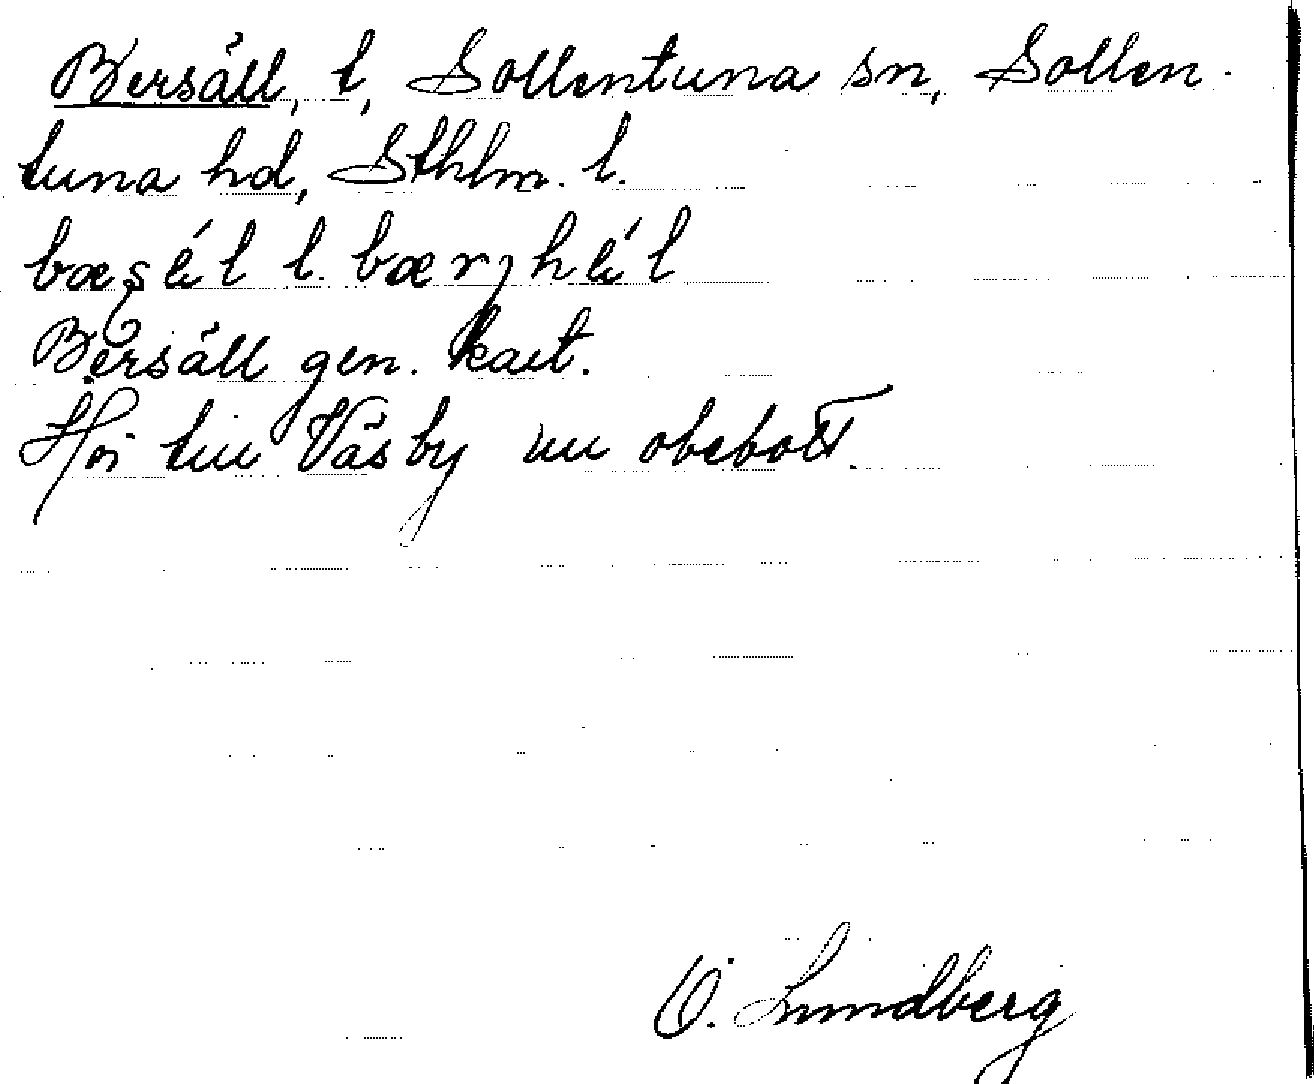 Bersäll, t, Sollentuna sn, Sollen-
tuna hd, Sthlm. l.
Bersäll gen. kart.
Hör till Väsby nu obebott.
O. Lundberg